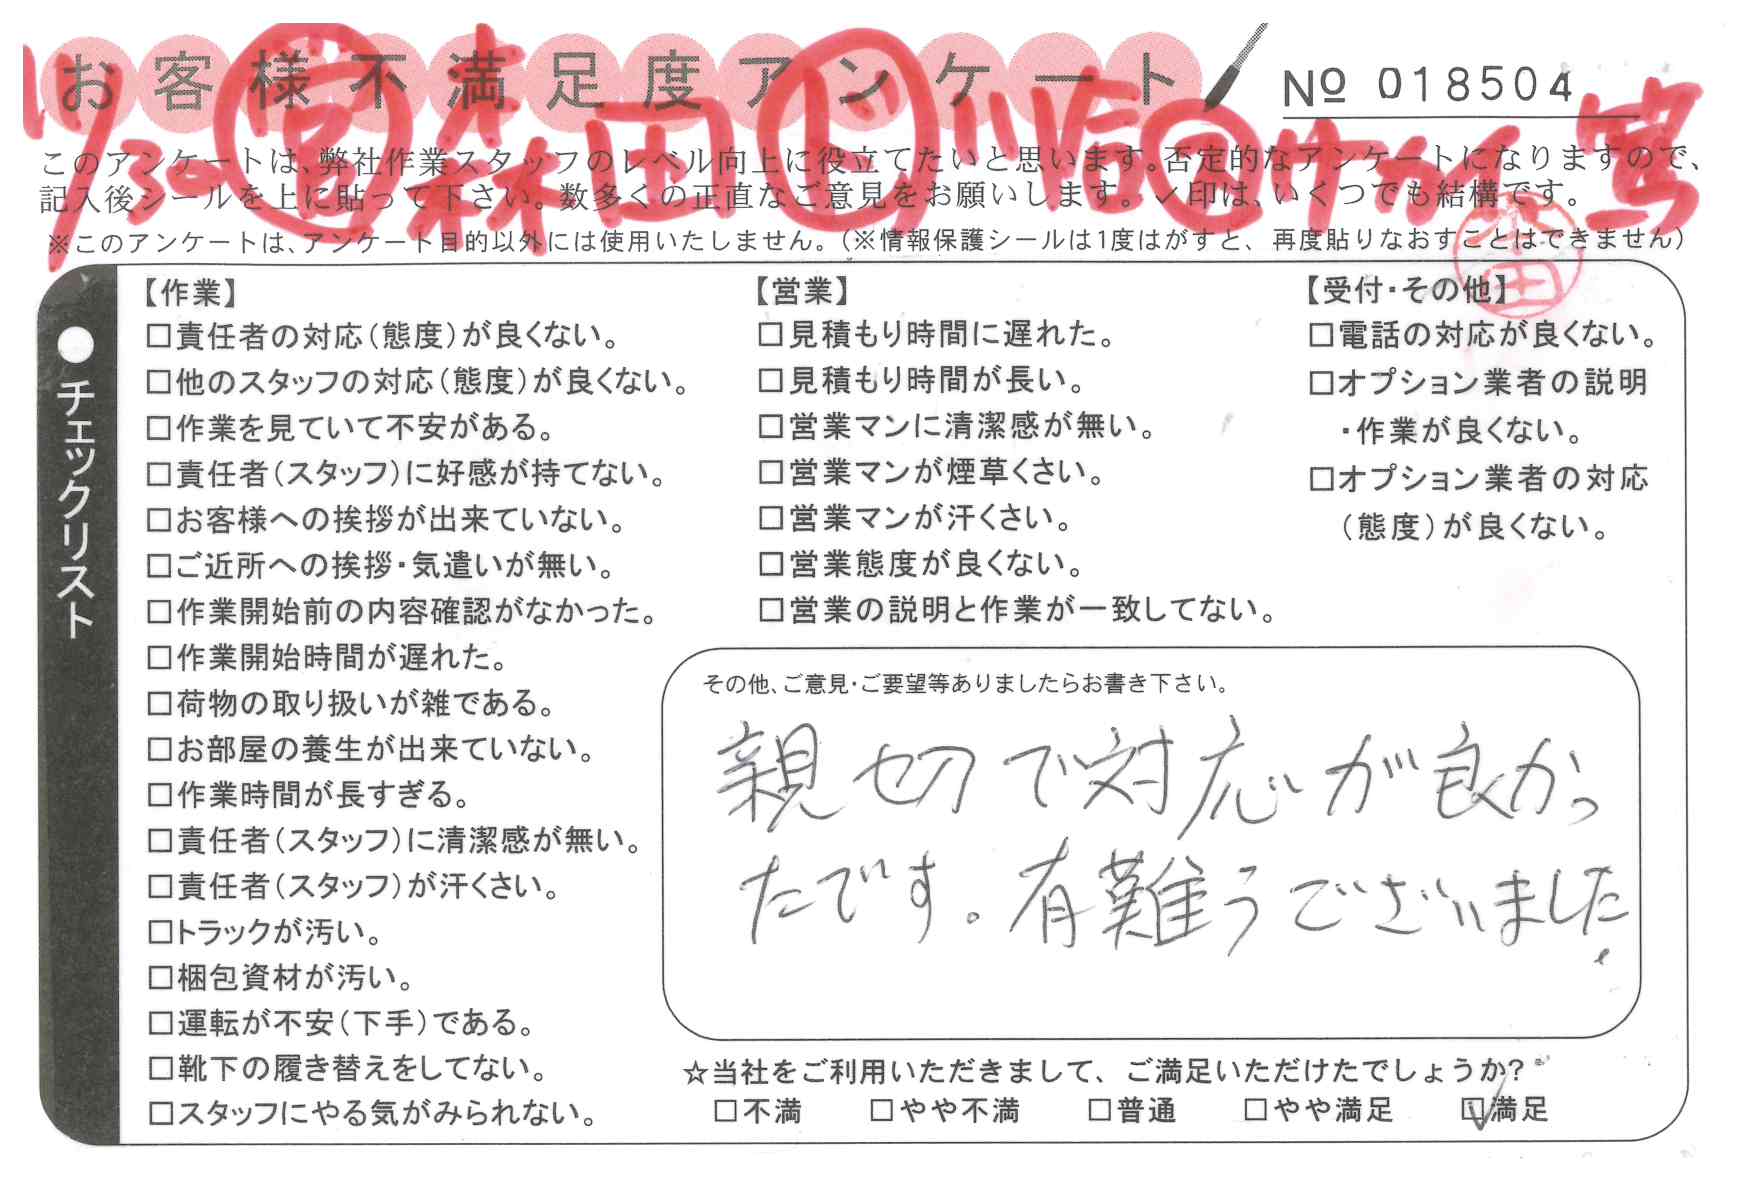 お客様不満足度アンケート
№ 018504
このアンケートは、弊社作業スタッフのレベル向上に役立てたいと思います。否定的なアンケートになりますので、
記入後シールを上に貼って下さい。数多くの正直なご意見をお願いします。✓印は、いくつでも結構です。
※このアンケートは、アンケート目的以外には使用いたしません。(※情報保護シールは1度はがすと、再度貼りなおすことはできません)
●チェックリスト
【作業】
□責任者の対応(態度)が良くない。
□他のスタッフの対応(態度)が良くない。
□作業を見ていて不安がある。
□責任者(スタッフ)に好感が持てない。
□お客様への挨拶が出来ていない。
□ご近所への挨拶・気遣いが無い。
□作業開始前の内容確認がなかった。
□作業開始時間が遅れた。
□荷物の取り扱いが雑である。
□お部屋の養生が出来ていない。
□作業時間が長すぎる。
□責任者(スタッフ)に清潔感が無い。
□責任者(スタッフ)が汗くさい。
□トラックが汚い。
□梱包資材が汚い。
□運転が不安(下手)である。
□靴下の履き替えをしてない。
□スタッフにやる気がみられない。
【営業】
□見積もり時間に遅れた。
□見積もり時間が長い。
□営業マンに清潔感が無い。
□営業マンが煙草くさい。
□営業マンが汗くさい。
□営業態度が良くない。
□営業の説明と作業が一致してない。
【受付・その他】
□電話の対応が良くない。
□オプション業者の説明
・作業が良くない。
□オプション業者の対応
(態度)が良くない。
その他、ご意見・ご要望等ありましたらお書き下さい。
親切で対応が良かっ
たです。有難うございました
!
☆当社をご利用いただきまして、ご満足いただけたでしょうか?
□不満 □やや不満 □普通 □やや満足 ☑満足